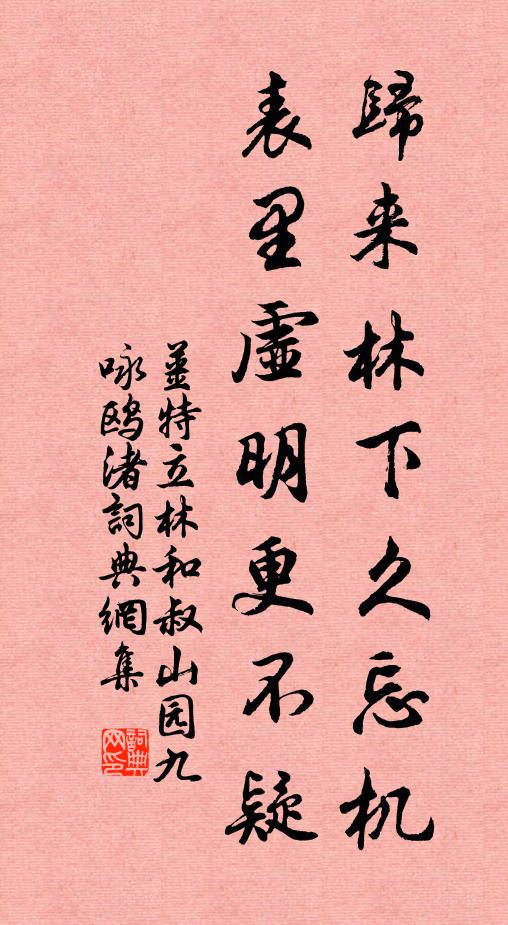 歸来林下久忘机
表里虛明更不疑
姜特立林和叔山园九
咏鸥渚詞典網集
詞典网印